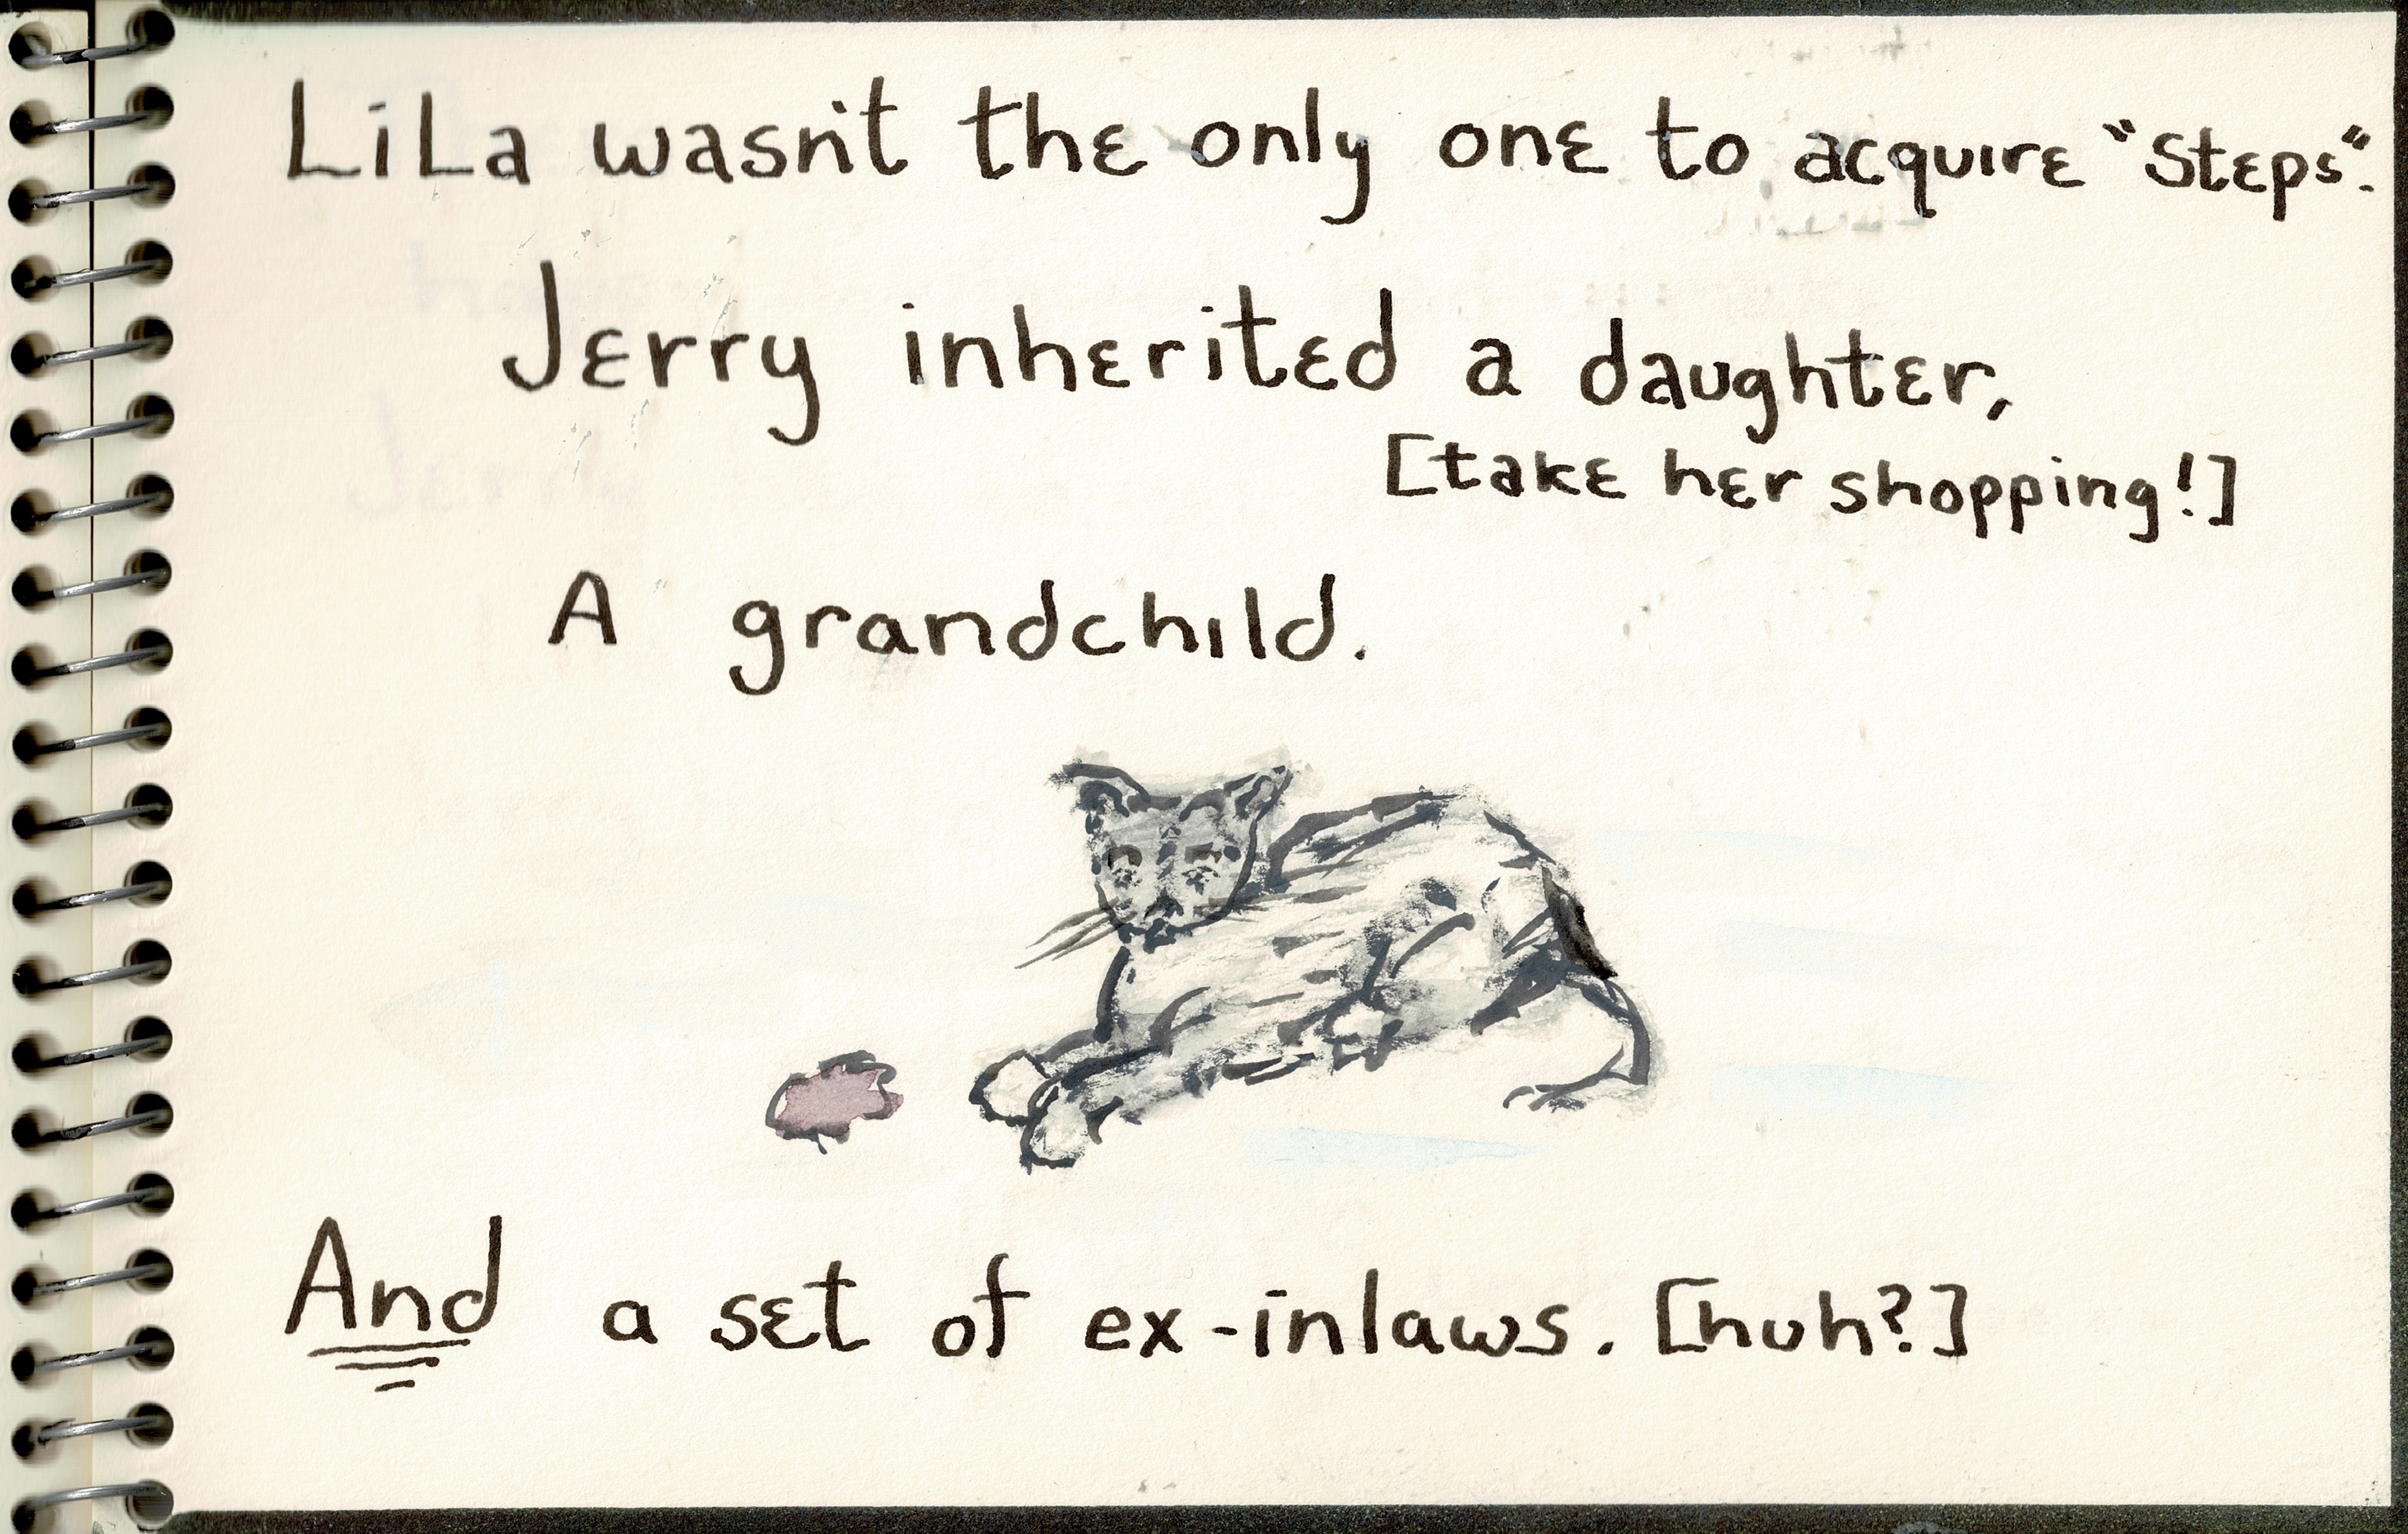 LiLa wasn't the only one to acquire "Steps".
Jerry inherited a daughter,
[take her shopping!]
A grandchild.
And a set of ex-inlaws. [huh?]